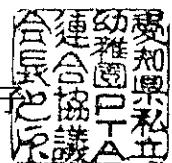 子
愛知県私立
幼稚園PTA
連合協議
会長之印